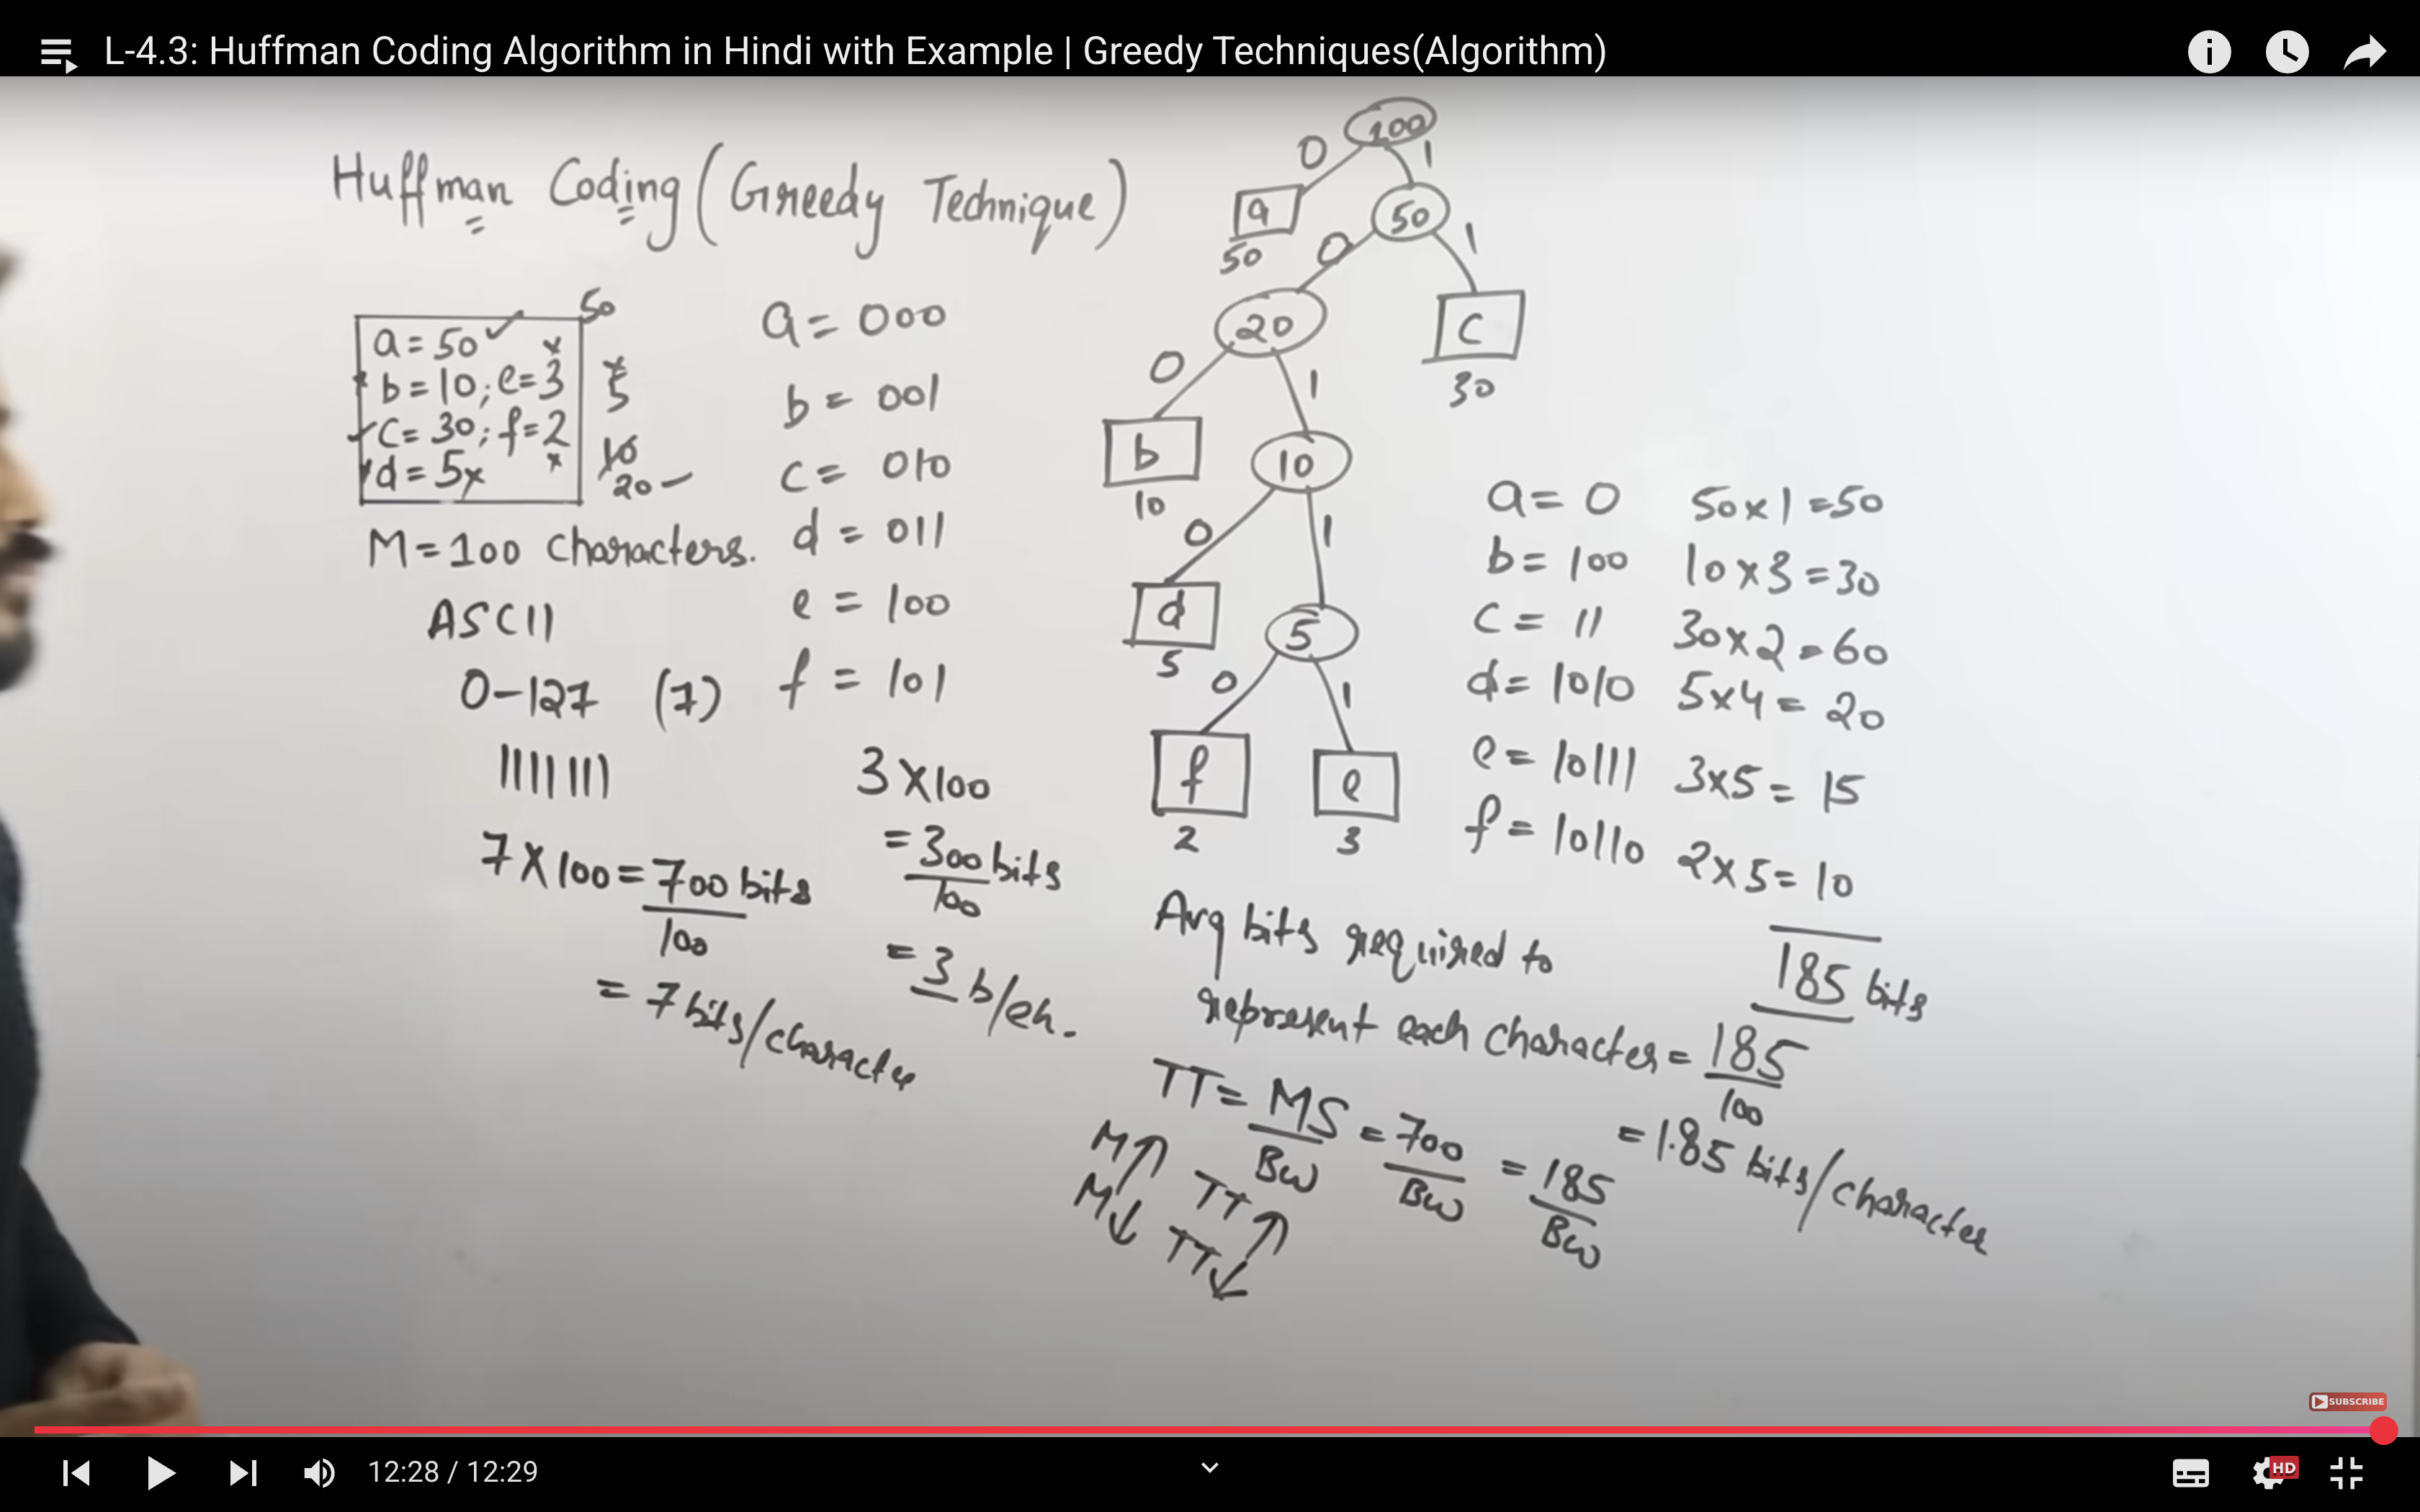 L-4.3: Huffman Coding Algorithm in Hindi with Example | Greedy Techniques(Algorithm)
Huffman Coding (Greedy Technique)
a = 50 ✓
b = 10; e = 3
✓ c = 30; f = 2
d = 5x
50
5
10
20 –
M = 100 characters.
ASCII
0-127 (7)
1111 111
7 X 100 = 700 bits
100
= 7 bits/character
a = 000
b = 001
c = 010
d = 011
e = 100
f = 101
3 X 100
= 300 bits
100
= 3 b/ch.
100
0 1
a 50
50
0 1
20 c
30
0 1
b 10
10
0 1
d 5
5
0 1
f e
2 3
a = 0 50 x 1 = 50
b = 100 10 x 3 = 30
c = 11 30 x 2 = 60
d = 1010 5 x 4 = 20
e = 10111 3 x 5 = 15
f = 10110 2 x 5 = 10
185 bits
Avg bits required to
represent each character = 185
100
= 1.85 bits/character
TT = MS = 700 = 185
BW BW BW
M↑ TT↑
M↓ TT↓
SUBSCRIBE
12:28 / 12:29
HD